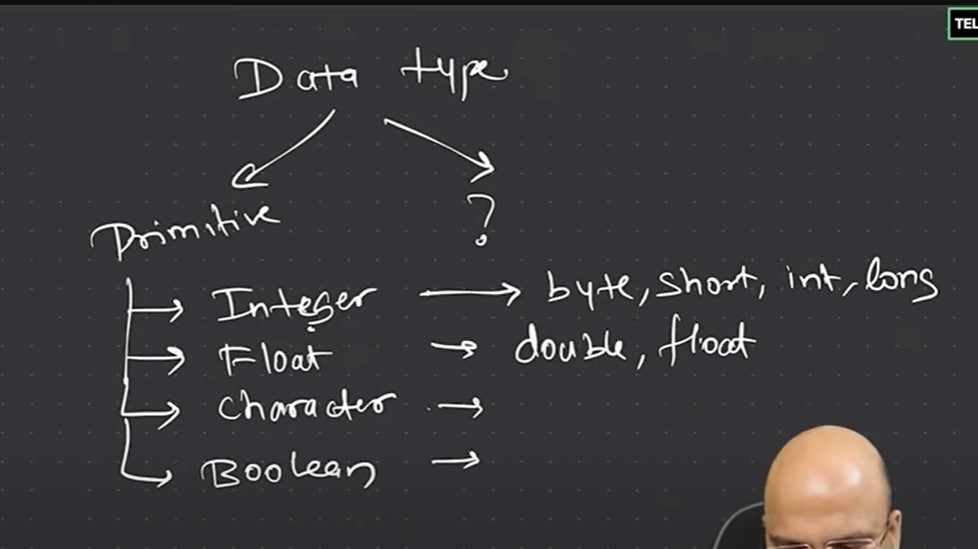 TEL
Data type
Primitive
?
Integer → byte, short, int, long
Float → double, float
Character →
Boolean →